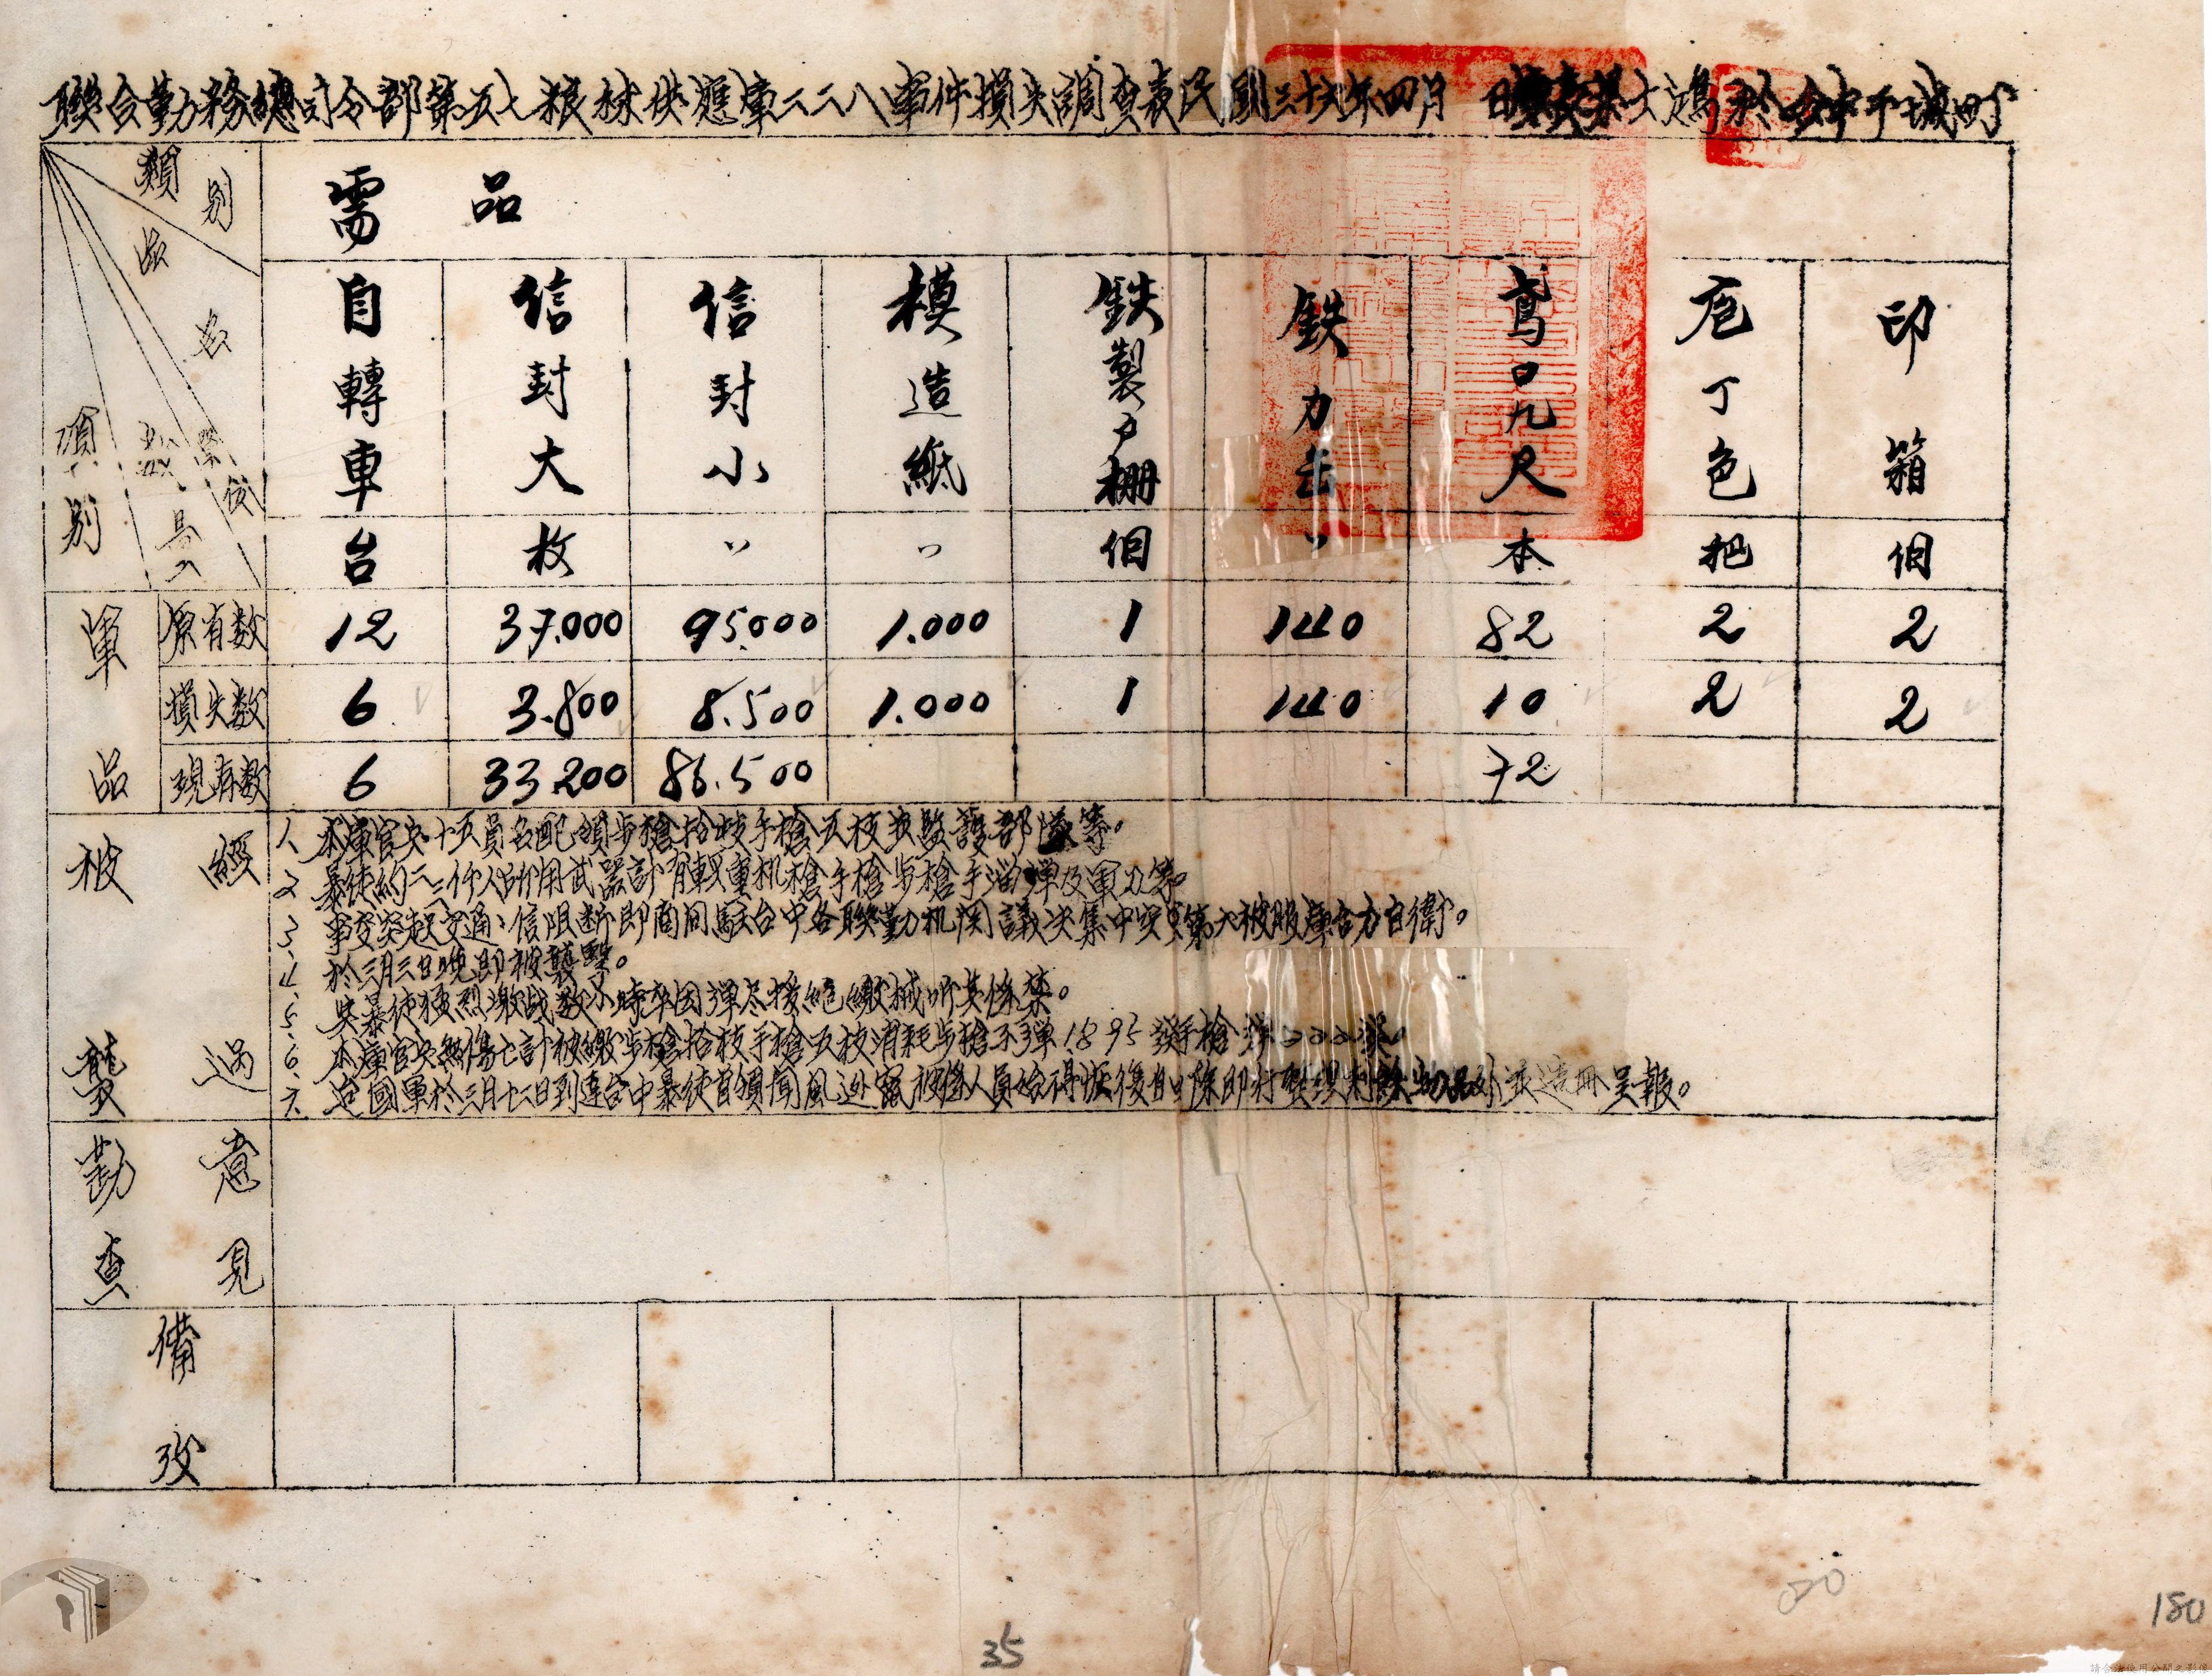 聯合勤務總司令部第五七粮秣供應庫二二八事件損失調查表民國三十六年四月 日 於台中干城町
類別
品名
單位
數量
項別
需品
自轉車 信封大 信封小 模造紙 鉄製戸棚 鉄力缶 鳶口九尺 庖丁色 印箱
台 枚 〃 〃 個 〃 本 把 個
軍品
原有数 12 37.000 95.000 1.000 1 140 82 2 2
損失数 6 3.800 8.500 1.000 1 140 10 2 2
現有数 6 33.200 86.500 72
被襲經過
1、本庫官兵十五員名配領步槍拾枝手槍五枝及監護部隊等。
2、暴徒約二三仟人所用武器計有輕重机槍手槍步槍手溜彈及軍刀等。
3、事变突起交通、信阻断即商同駐台中各聯勤机関議决集中 第六被服庫合力自衛。
4、於三月三日晚即被襲擊。
5、與暴徒猛烈激战数小時卒因彈尽援絕繳械听其 禁。
6、本庫官兵無傷亡計被繳步槍拾枝手槍五枝消耗步槍子彈1895發手槍
7、迨國軍於三月十二日到達台中暴徒首領聞風逃竄被 人員始得恢復自由除即行整理剩餘物品外 造冊呈報。
勘查意見
備攷
35
180